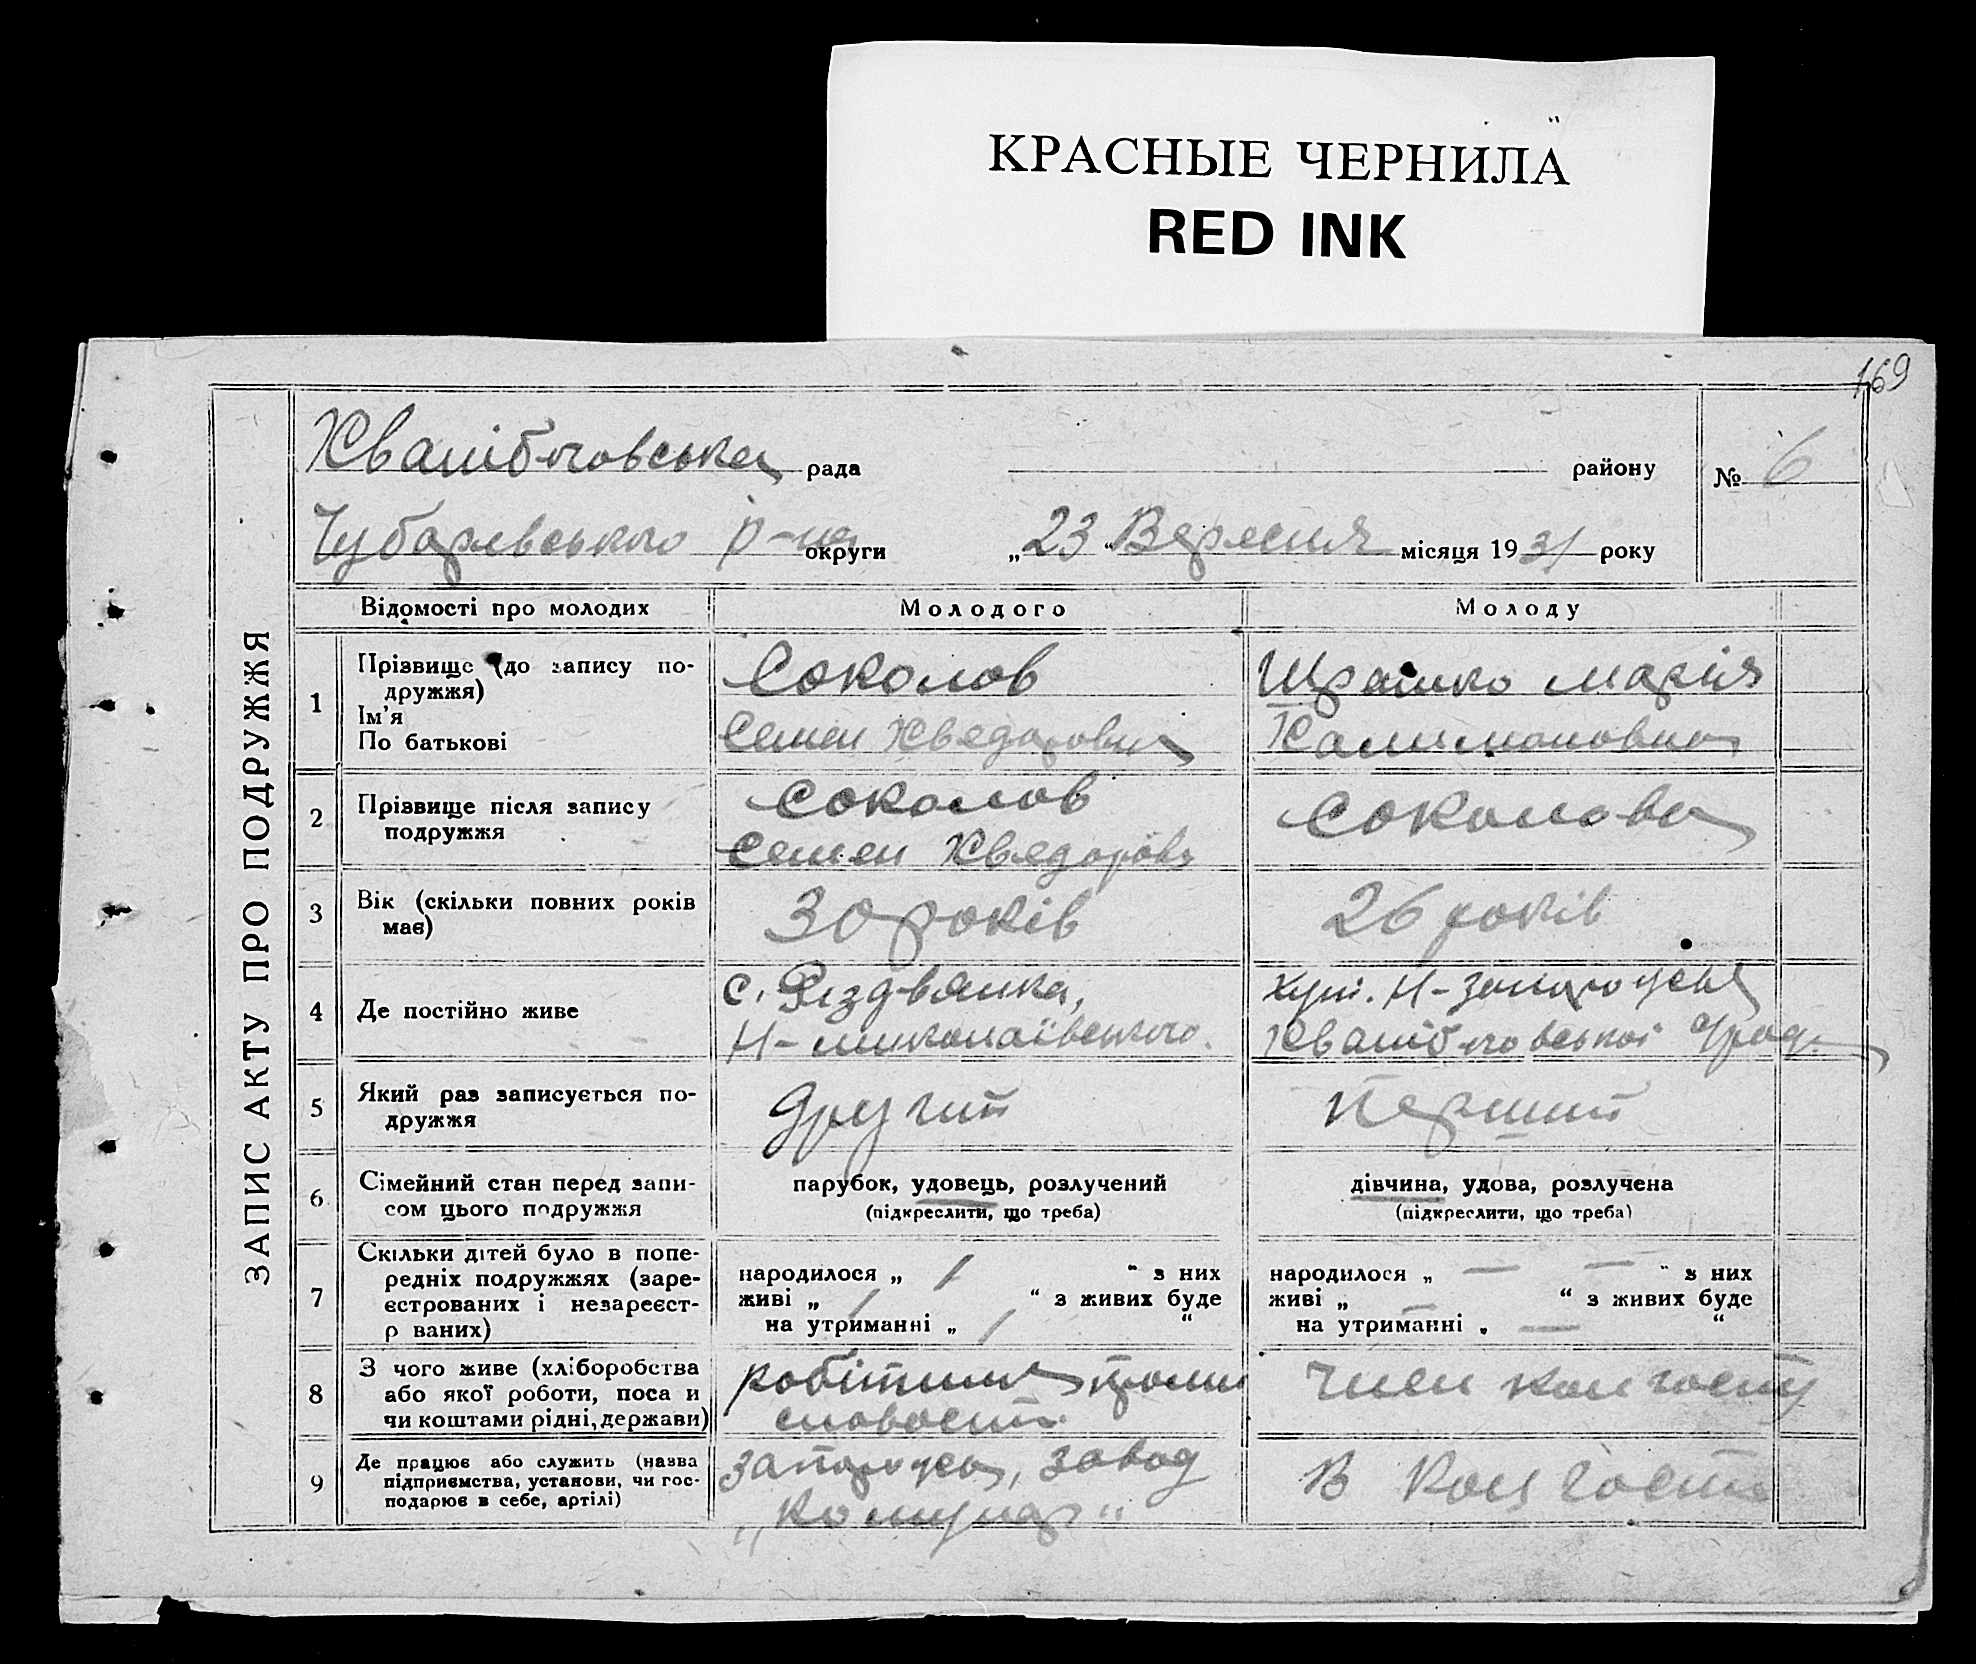 КРАСНЫЕ ЧЕРНИЛА
RED INK
169
ЗАПИС АКТУ ПРО ПОДРУЖЖЯ
рада району № 6
Чубарівського р-на округи „23“ Вересня місяця 1931 року
Відомості про молодих Молодого Молоду
1 Прізвище (до запису по-
дружжя)
Ім'я
По батькові
Соколов
Семен Хведорович
Марія
2 Прізвище після запису
подружжя
Соколов
Семен Хведоров
Соколова
3 Вік (скільки повних років
має)
30 років
26 років
4 Де постійно живе
с. Різдвянка,
Н-миколаївського.
хут. Н-Запоріжья
5 Який раз записується по-
дружжя
другий
Перший
6 Сімейний стан перед запи-
сом цього подружжя
парубок, удовець, розлучений
(підкреслити, що треба)
дівчина, удова, розлучена
(підкреслити, що треба)
7 Скільки дітей було в попе-
редніх подружжях (заре-
єстрованих і незареєст-
р ваних)
народилося „ 1 “ з них
живі „ 1 “ з живих буде
на утриманні „ 1 “
народилося „ — — “ з них
живі „ — “ з живих буде
на утриманні „ — “
8 З чого живе (хліборобства
або якої роботи, поса и
чи коштами рідні, держави)
робітник проми
словості
Член колгоспу
9 Де працює або служить (назва
підприємства, установи, чи гос-
подарює в себе, артілі)
Запоріжа, завод
„Комунар“
В колгоспі